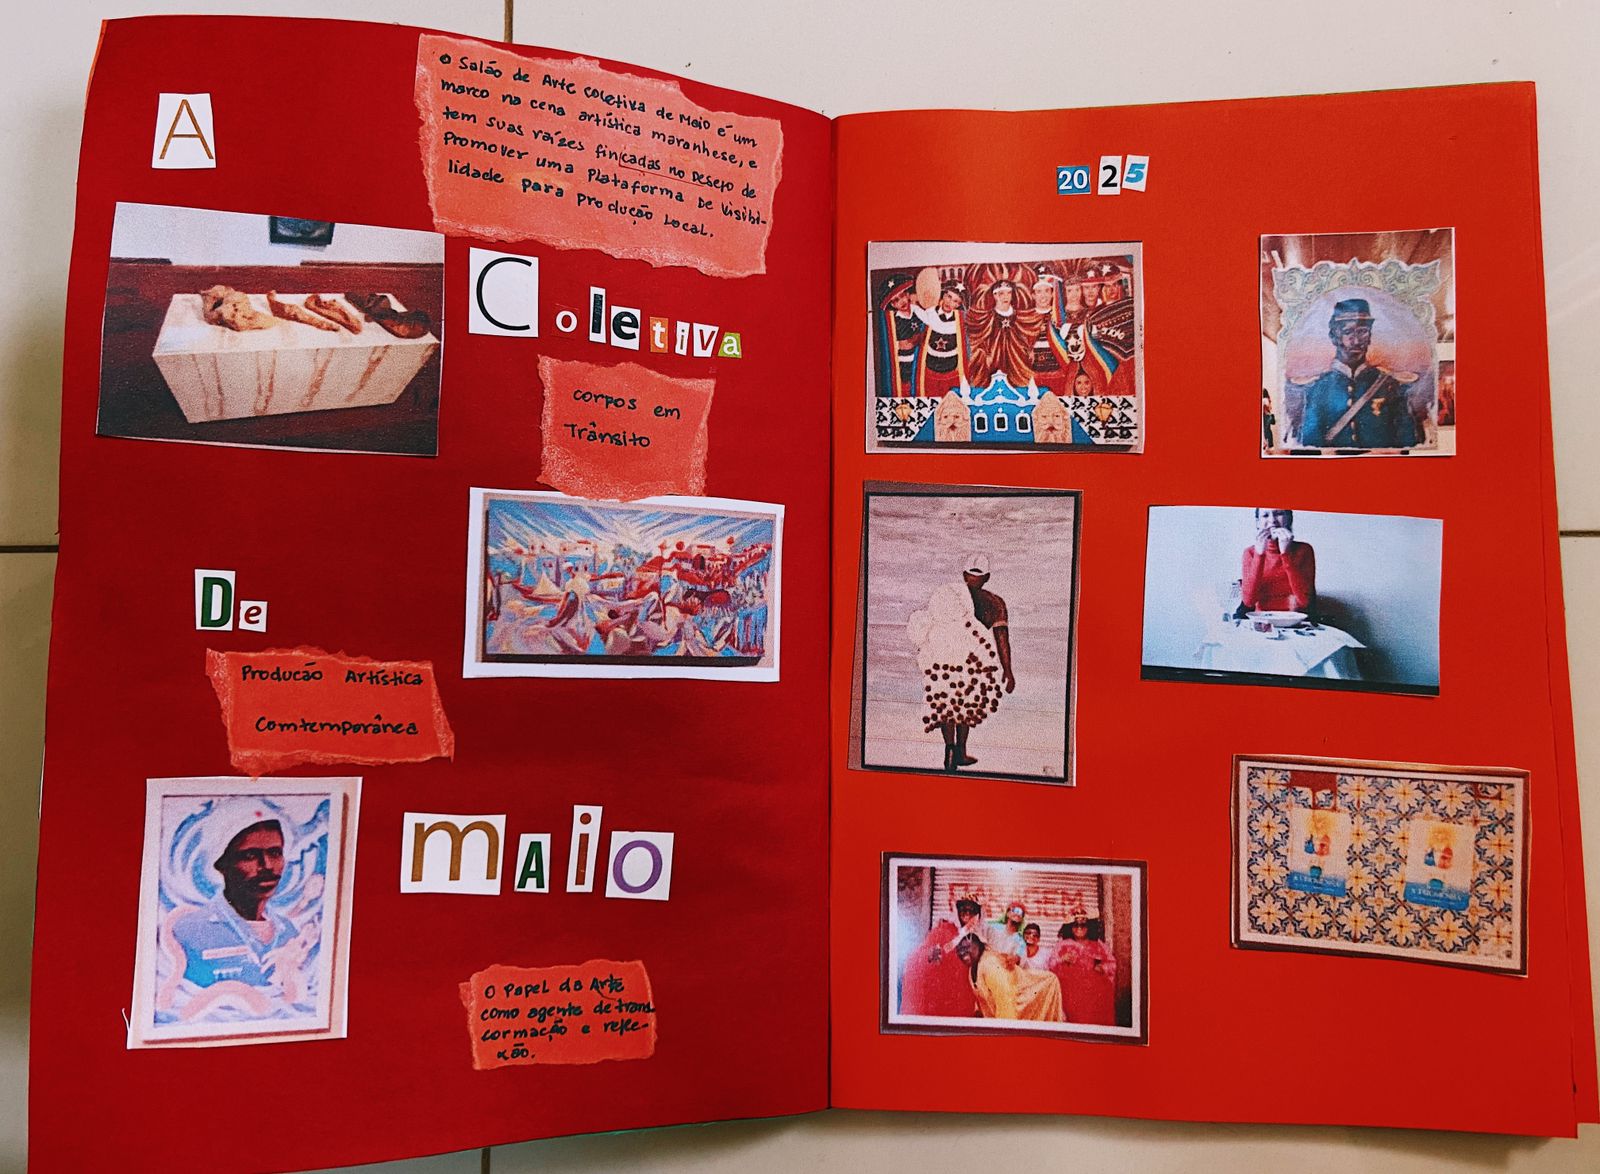 A
O Salão de Arte coletiva de Maio é um
marco na cena artística maranhense, e
tem suas raízes fincadas no Desejo de
Promover uma Plataforma De Visibi-
lidade para produção Local.
Coletiva
corpos em
Trânsito
De
Producão Artística
Comtemporânea
maio
O Papel da Arte
como agente de trans
formação e refle-
xão.
2025